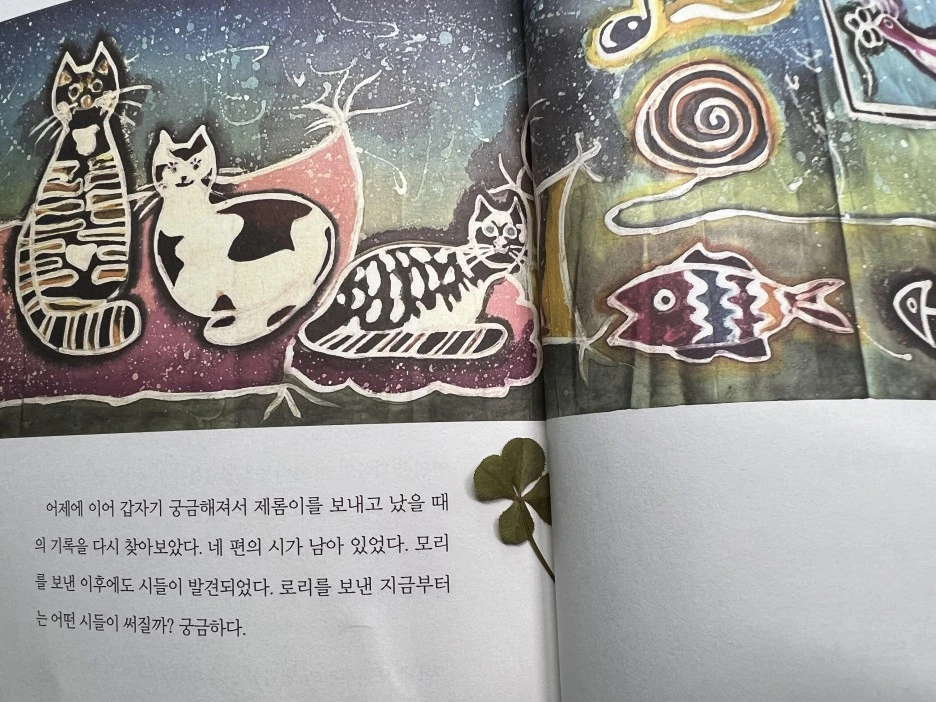 어제에 이어 갑자기 궁금해져서 제롬이를 보내고 났을 때
의 기록을 다시 찾아보았다. 네 편의 시가 남아 있었다. 모리
를 보낸 이후에도 시들이 발견되었다. 로리를 보낸 지금부터
는 어떤 시들이 써질까? 궁금하다.